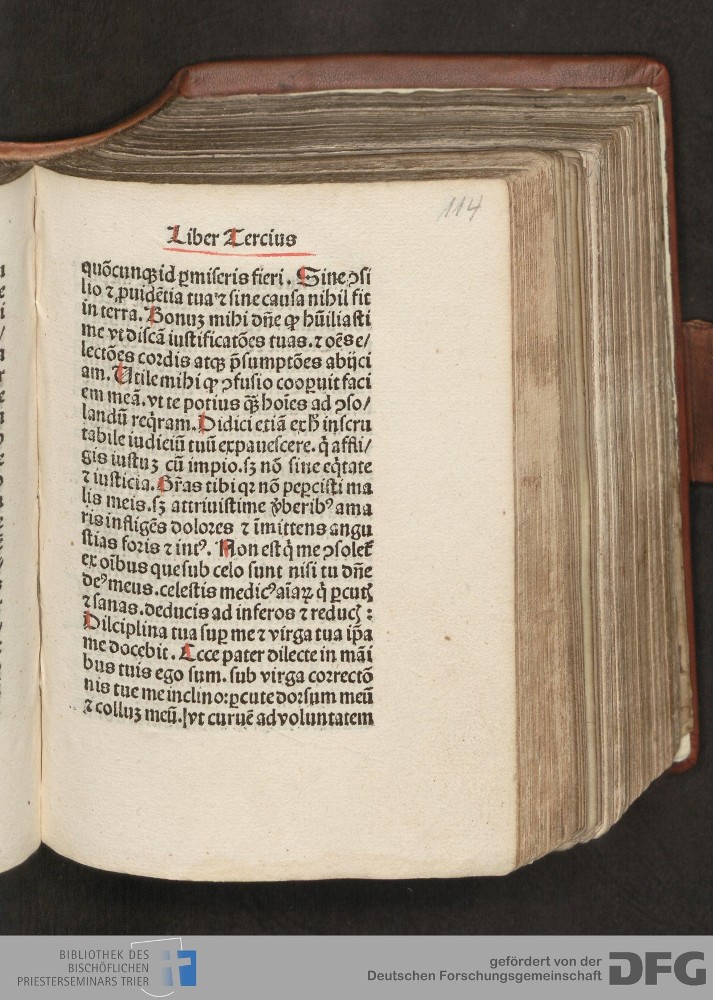 114
Liber Tercius
quōcunqꝫ id ꝑmiseris fieri. Sine ↄsi
lio ⁊ ꝓuidētia tua ⁊ sine causa nihil fit
in terra. Bonuꝫ mihi dn̄e ꝙ hūiliasti
me vt discā iustificatōes tuas. ⁊ oēs e/
lectōes cordis atqꝫ p̄sumptōes abijci
am. Utile mihi ꝙ ↄfusio cooꝑuit faci
em meā. vt te potius qꝫ̄ hoīes ad ↄso/
landū reqͥram. Didici etiā ex hͦ inscru
tabile iudiciū tuū expauescere. qͥ affli/
gis iustuꝫ cū impio. sꝫ nō sine eqͥtate
⁊ iusticia. Gr̄as tibi qꝛ nō peꝑcisti ma
lis meis. sꝫ attriuisti me v̄beribꝰ ama
ris infligēs dolores ⁊ īmittens angu
stias foris ⁊ intꝰ. Non est qͥ me ↄsolet̄
ex oībus que sub celo sunt nisi tu dn̄e
deꝰ meus. celestis medicꝰ aīaꝝ qͥ ꝑcutꝭ
⁊ sanas. deducis ad inferos ⁊ reducꝭ :
Disciplina tua suꝑ me ⁊ virga tua ip̄a
me docebit. Ecce pater dilecte in māi
bus tuis ego sum. sub virga correctō
nis tue me inclino: ꝑcute dorsum meū
⁊ colluꝫ meū. vt curuē ad voluntatem
BIBLIOTHEK DES
BISCHÖFLICHEN
PRIESTERSEMINARS TRIER
gefördert von der
Deutschen Forschungsgemeinschaft
DFG